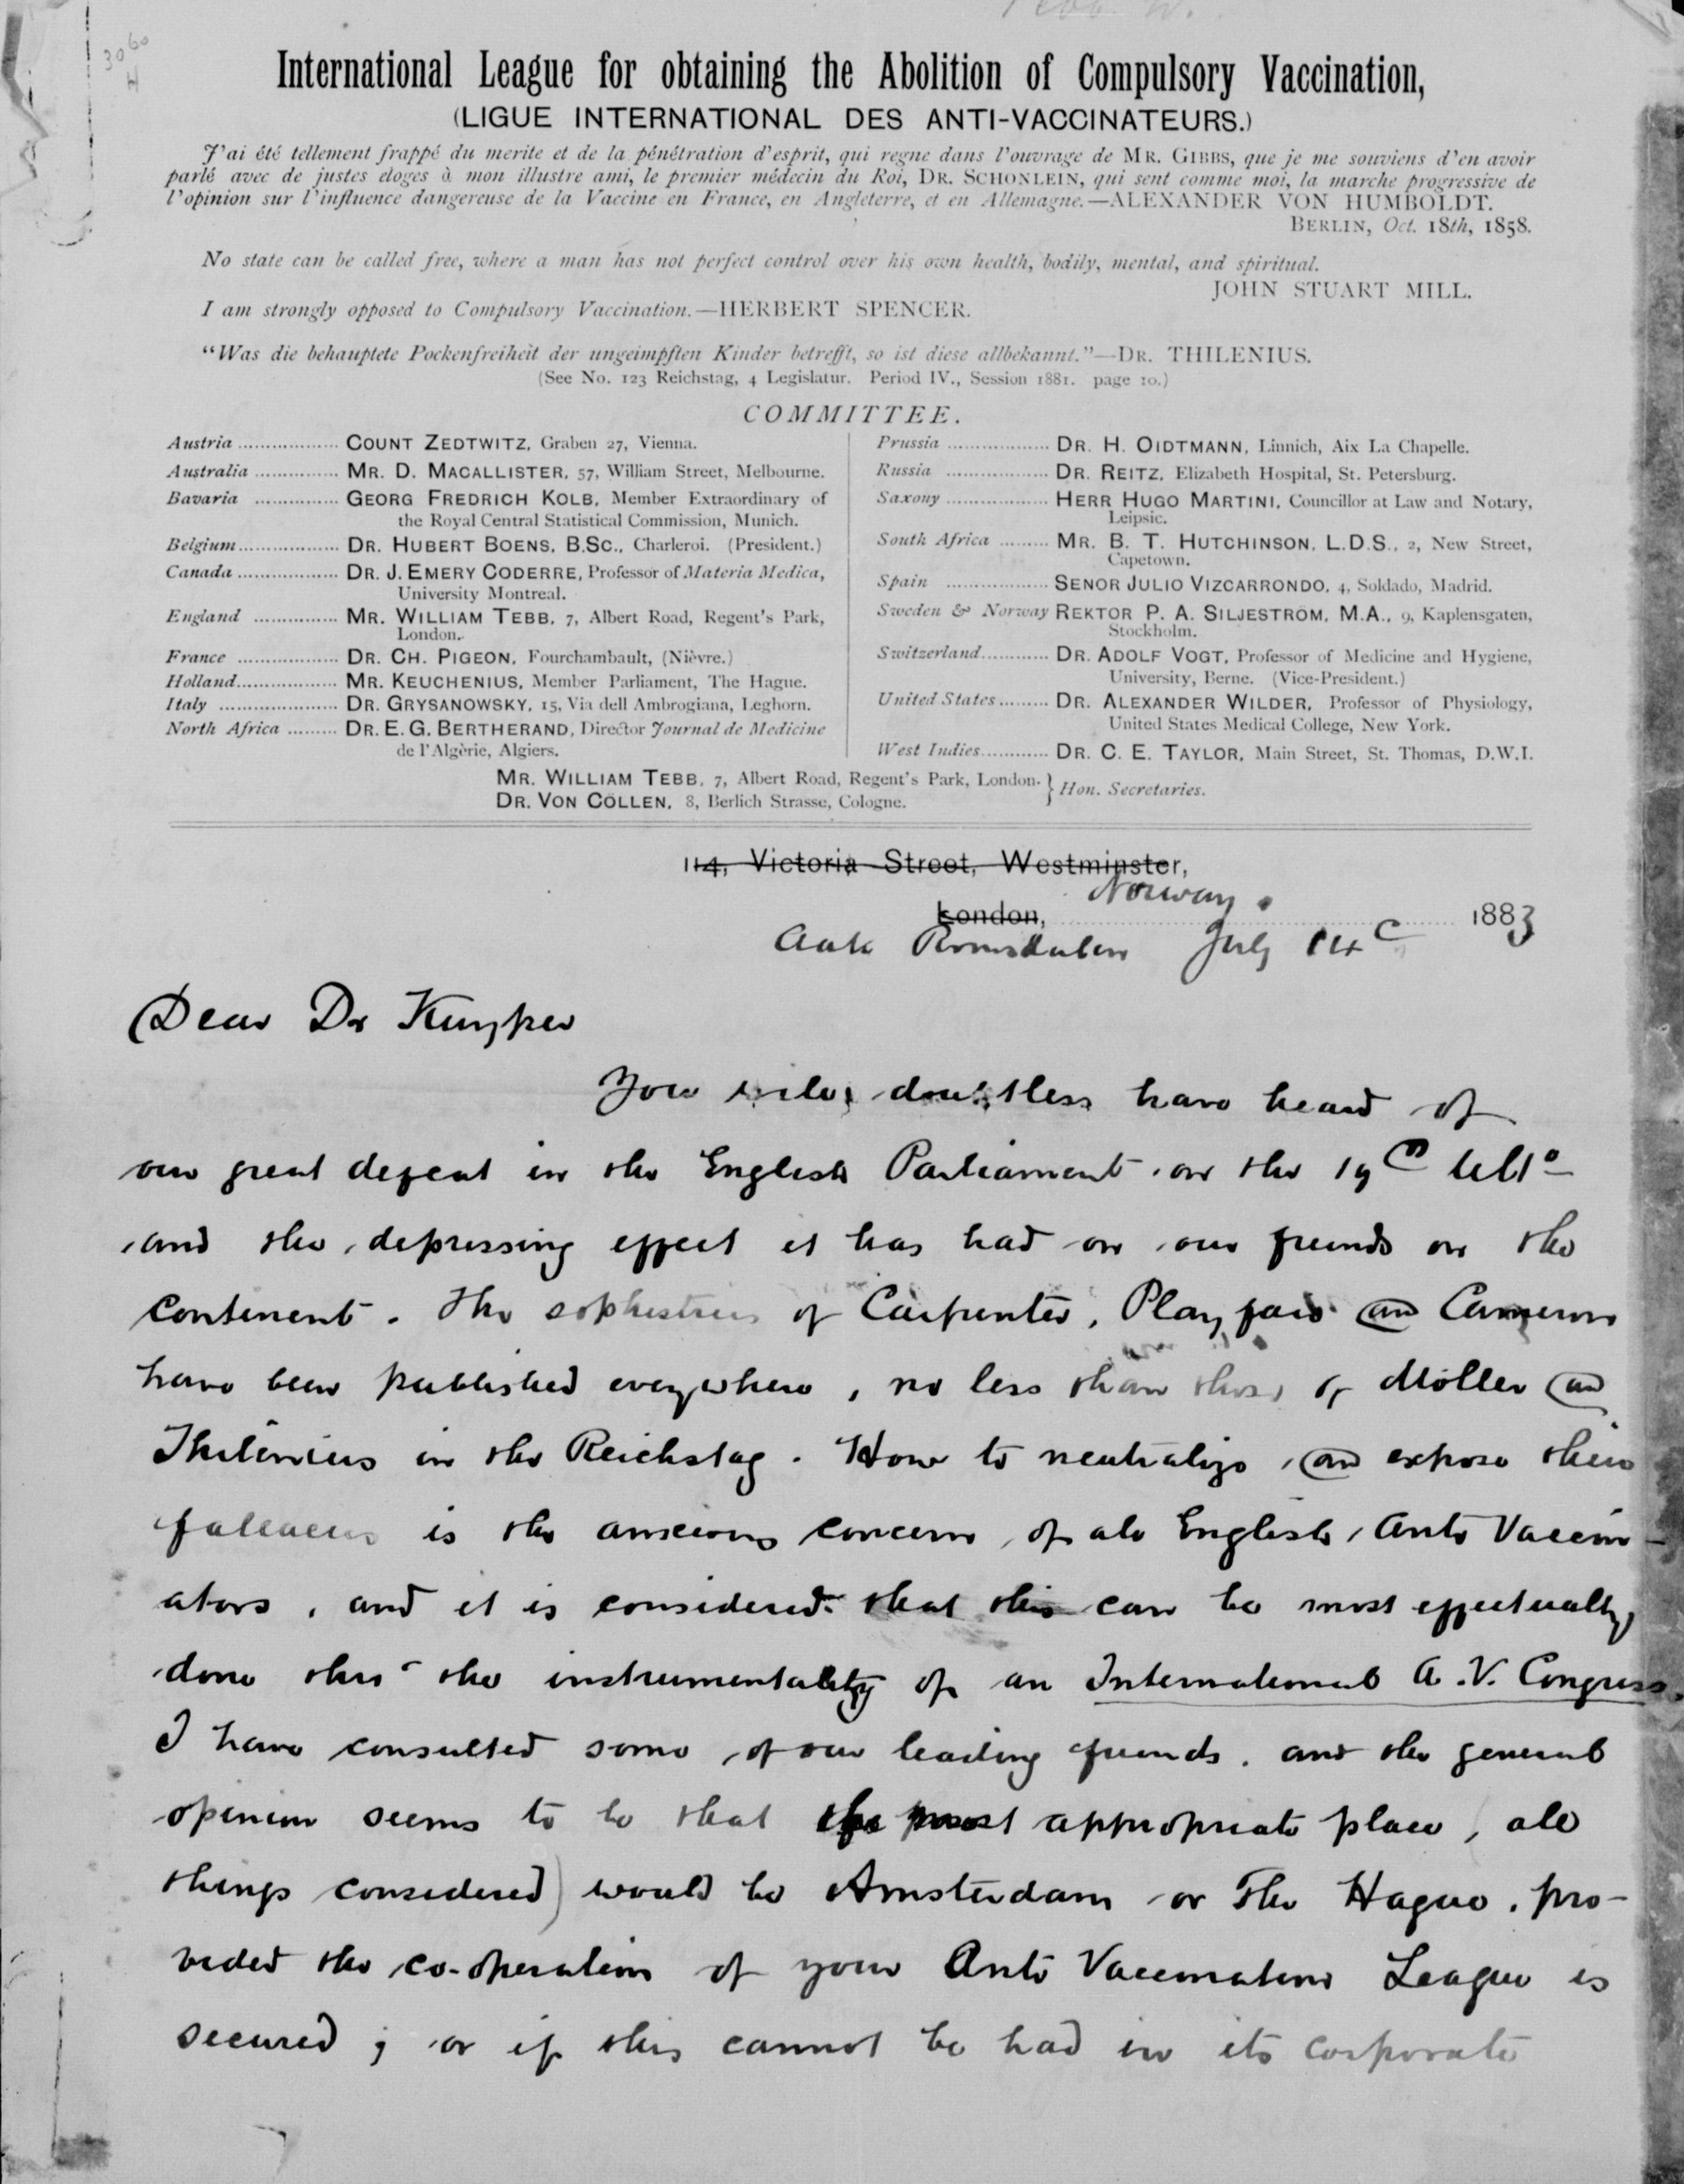 Tebb. W.
3060
H
International League for obtaining the Abolition of Compulsory Vaccination,
(LIGUE INTERNATIONAL DES ANTI-VACCINATEURS.)
J'ai été tellement frappé du merite et de la pénétration d'esprit, qui regne dans l'ouvrage de MR. GIBBS, que je me souviens d'en avoir
parlé avec de justes eloges à mon illustre ami, le premier médecin du Roi, DR. SCHONLEIN, qui sent comme moi, la marche progressive de
l'opinion sur l'influence dangereuse de la Vaccine en France, en Angleterre, et en Allemagne.—ALEXANDER VON HUMBOLDT.
BERLIN, Oct. 18th, 1858.
No state can be called free, where a man has not perfect control over his own health, bodily, mental, and spiritual.
JOHN STUART MILL.
I am strongly opposed to Compulsory Vaccination.—HERBERT SPENCER.
"Was die behauptete Pockenfreiheit der ungeimpften Kinder betrefft, so ist diese allbekannt."—DR. THILENIUS.
(See No. 123 Reichstag, 4 Legislatur. Period IV., Session 1881. page 10.)
COMMITTEE.
Austria .................. COUNT ZEDTWITZ, Graben 27, Vienna.
Australia ............... MR. D. MACALLISTER, 57, William Street, Melbourne.
Bavaria ............... GEORG FREDRICH KOLB, Member Extraordinary of
the Royal Central Statistical Commission, Munich.
Belgium.................. DR. HUBERT BOENS, B.SC., Charleroi. (President.)
Canada .................. DR. J. EMERY CODERRE, Professor of Materia Medica,
University Montreal.
England ............... MR. WILLIAM TEBB, 7, Albert Road, Regent's Park,
London.
France .................. DR. CH. PIGEON, Fourchambault, (Nièvre.)
Holland.................. MR. KEUCHENIUS, Member Parliament, The Hague.
Italy ..................... DR. GRYSANOWSKY, 15, Via dell Ambrogiana, Leghorn.
North Africa ......... DR. E. G. BERTHERAND, Director Journal de Medicine
de l'Algèrie, Algiers.
Prussia .................. DR. H. OIDTMANN, Linnich, Aix La Chapelle.
Russia .................. DR. REITZ, Elizabeth Hospital, St. Petersburg.
Saxony .................. HERR HUGO MARTINI, Councillor at Law and Notary,
Leipsic.
South Africa ......... MR. B. T. HUTCHINSON, L.D.S., 2, New Street,
Capetown.
Spain .................. SENOR JULIO VIZCARRONDO, 4, Soldado, Madrid.
Sweden & Norway REKTOR P. A. SILJESTRÖM, M.A., 9, Kaplensgaten,
Stockholm.
Switzerland............ DR. ADOLF VOGT, Professor of Medicine and Hygiene,
University, Berne. (Vice-President.)
United States ......... DR. ALEXANDER WILDER, Professor of Physiology,
United States Medical College, New York.
West Indies............ DR. C. E. TAYLOR, Main Street, St. Thomas, D.W.I.
MR. WILLIAM TEBB, 7, Albert Road, Regent's Park, London. } Hon. Secretaries.
DR. VON CÖLLEN, 8, Berlich Strasse, Cologne.
114, Victoria Street, Westminster,
Norway.
London, 1883
Aak Romsdalen July 14
Dear Dr Kuyper
You will doubtless have heard of
our great defeat in the English Parliament on the 19th Ulto
and the depressing effect it has had on our friends on the
Continent. The sophistries of Carpenter, Playfair and Cameron
have been published everywhere, no less than those of Möller and
Thilenius in the Reichstag. How to neutralize and expose their
fallacies is the anxious concern of all English Anti Vaccin-
ators, and it is considered that this can be most effectually
done thro' the instrumentality of an International A.V. Congress.
I have consulted some of our leading friends, and the general
opinion seems to be that the most appropriate place (all
things considered) would be Amsterdam or The Hague, pro-
vided the co-operation of your Anti Vaccination League is
secured; or if this cannot be had in its corporate